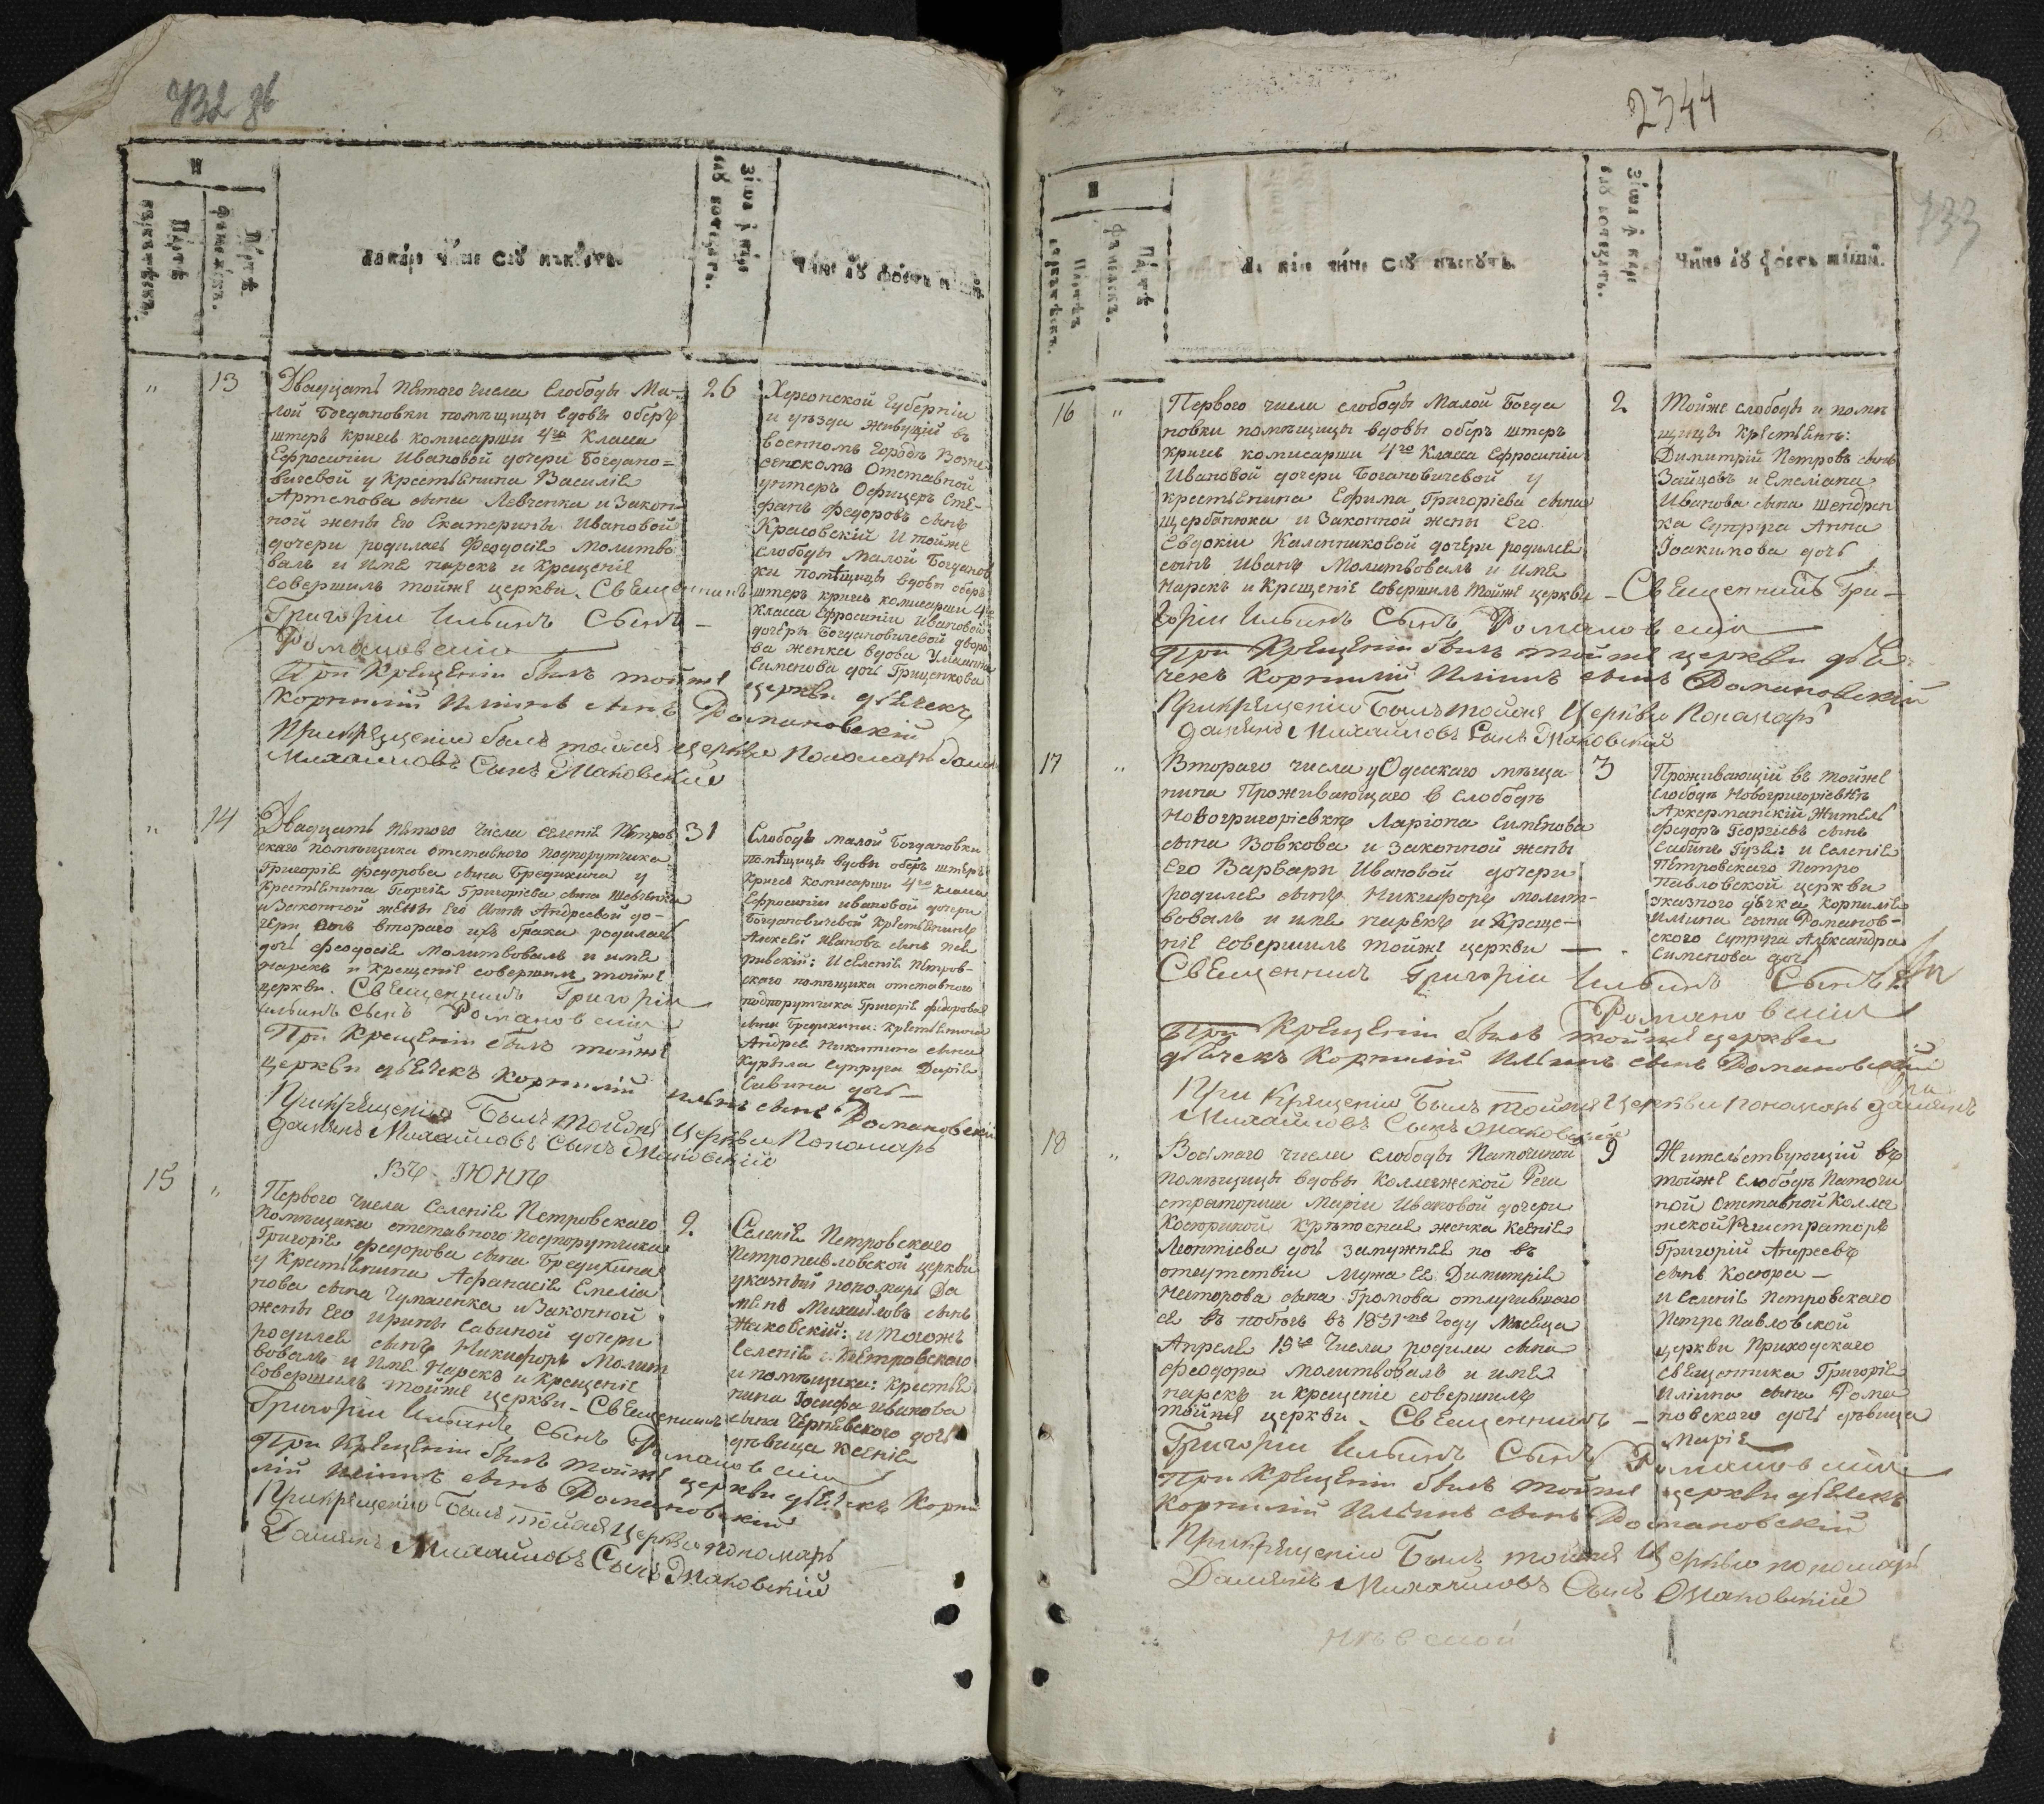 732 зв
и
Пáртѣ
бэрбэтѣскъ.
Пáртѣ
фемеѧскъ.
Ла кáре чи́не с'ау нъскутъ.
Зіѡа ꙟ каре
с'аꙋ ботезатъ.
Чи́не аꙋ фостъ наши́.
„ 13
Двадцать пятого числа Слободы Ма-
лой Богдановки помѣщицы вдовы оберъ
штеръ кригсъ комисарши 4го Класса
Ефросиніи Ивановой дочери Богдано=
вичевой у Крестьянина Василія
Артемова сына Левченка и Закон-
ной жены Его Екатерины Ивановой
дочери родилась Феодосія молитво
валъ и имя нарекъ и Крещеніе
Совершилъ тойже церкви. Священникъ
Григорій Ильинъ Сынъ –
Романовскій
При Крещеніи былъ тойже церкви дьячекъ
Корнилій Ильинъ сынъ Романовскій
При крещеніи былъ тойже церкви Пономарь Дамянъ
Михайловъ Сынъ Маковскій
26
Херсонской Губерніи
и уѣзда живущій въ
военномъ городѣ Возне
сенскомъ Отставной
унтеръ Офицеръ Сте-
фанъ Федоровъ сынъ
Красовскій и тойже
слободы Малой Богданов
ки помѣщицы вдовы оберъ
штеръ кригсъ комисарши 4го
класса Ефросиніи Ивановой
дочери Богдановичевой дворо
ва женка вдова Улианна
Сименова дочь Грищенкова
„ 14
Двадцать пятого числа селенія Петров
скаго помѣщика отставного подпорутчика
Григорія Федорова сына Бредихина у
Крестьянина Георгія Григоріева сына Шевченка
и Законной жены Его Анны Андреевой до-
чери отъ втораго ихъ брака родилась
дочь Феодосія Молитвовалъ и имя
нарекъ и крещеніе совершилъ тойже
церкви. Священникъ Григорій
Ильинъ Сынъ Романовскій
При Крещеніи былъ тойже
церкви дьячекъ Корнилій Ильинъ сынъ Романовскій
При крещеніи Былъ тойже Церкви Пономарь
Дамянъ Михайловъ Сынъ Маковскій
31
Слободы малой Богдановки
помѣщицы вдовы оберъ штеръ
Кригсъ комисарши 4го класса
Ефросиніи Ивановой дочери
Богдановичевой крестьянинъ
Алексѣй Ивановъ сынъ
ривскій: и селенія Петров-
скаго помѣщика отставного
подпорутчика Григорія Федорова
сына Бредихина: крестьянина
Андрея Никитина сына
Курыла супруга Дарія
Савина дочь –
Въ Іюнѣ
15 „
Первого числа Селенія Петровскаго
Помѣщика отставного Подпорутчика
Григорія Федорова сына Бредихина
у Крестьянина Афанасія Емелія
нова сына Чумаченка и Законной
жены Его Ирины Савиной дочери
родился сынъ Никифоръ Молит
вовалъ и Имя Нарекъ и Крещеніе
Совершилъ тойже церкви – Священникъ
Григорій Ильинъ Сынъ Романовскій
При Крещеніи былъ тойже церкви дьячекъ Корни
лій Ильинъ сынъ Романовскій
При крещеніи Былъ тойже Церкви пономарь
Дамянъ Михайловъ Сынъ Маковскій
9.
Селенія Петровскаго
Петропавловской церкви
указный пономарь Да
мянъ Михайловъ сынъ
Маковскій: и тогожъ
Селенія: Петровскаго
и помѣщика: крестья
нина Іосифа Иванова
сына Чернявского дочь
дѣвица Ксенія
2344
733
и
Пáртѣ
бэрбэтѣскъ.
Пáртѣ
фемеѧскъ.
Ла кáре чи́не с'аꙋ нъскутъ.
Зіѡа ꙟ каре
с'аꙋ ботезатъ.
Чи́не аꙋ фостъ наши́.
16 „
Первого числа слободы Малой Богда
новки помѣщицы вдовы оберъ штеръ
кригсъ комисарши 4го Класса Ефросиніи
Ивановой дочери Богановичевой у
крестьянина Ефима Григоріева сына
Щербатюка и Законной жены Его
Евдокіи Калениковой дочери родился
сынъ Иванъ Молитвовалъ и Имя
Нарекъ и Крещеніе Совершилъ тойже церкви – Священникъ Гри-
горій Ильинъ Сынъ Романовскій
При Крещеніи былъ тойже церкви дья-
чекъ Корнилій Ильинъ сынъ Романовскій
При крещеніи Былъ тойже Церкви Пономарь
Дамянъ Михайловъ Сынъ Маковскій
2
Тойже слободы и помѣ
щицы Крестьяне:
Димитрій Петровъ сынъ
Зайцовъ и Емеліана
Иванова сына Шендрен
ка супруга Анна
Іоакимова дочь
17 „
Втораго числа у Одесскаго мѣща
нина Проживающаго в слободѣ
Новогригоріевкѣ Ларіона Сименова
сына Вовкова и законной жены
Его Варвары Ивановой дочери
родился сынъ Никифоръ молит-
вовалъ и имя нарекъ и Креще-
ніе совершилъ тойже церкви –
Священникъ Григорій Ильинъ Сынъ
Романовскій
При Крещеніи былъ тойже церкви
дьячекъ Корнилій Ильинъ сынъ Романовскій
При Крещеніи Былъ тойже Церкви пономарь Дамянъ
Михайловъ Сынъ Маковскій
3
Проживающій въ тойже
слободѣ Новогригоріевкѣ
Аккерманскій Житель
Федоръ Георгіевъ сынъ
Гузя: и Селенія
Петровскаго Петро
Павловской церкви
указного дьячка Корнилія
Ильина сына Романов-
ского супруга Александра
Сименова дочь
18 „
Восьмаго числа слободы Паточиной
помѣщицы вдовы Коллежской Реги
страторши Маріи Ивановой дочери
Косюриной крѣпосная женка Ксенія
Леонтіева дочь замужняя но въ
отсутствіи мужа Ея Димитрія
Несторова сына Громова отлучившаго
ся въ побѣгъ въ 1831мъ году Месяца
Апреля 15го Числа родила сына
Феодора молитвовалъ и имя
нарекъ и крещеніе совершилъ
тойже церкви – Священникъ –
Григорій Ильинъ Сынъ Романовскій
При Крещеніи былъ тойже церкви дьячекъ
Корнилій Ильинъ сынъ Романовскій
При крещеніи Былъ тойже Церкви пономарь
Дамянъ Михайловъ Сынъ Маковскій
9
Жительствующій въ
тойже слободѣ Паточи
ной Отставной Колле
жской Регистраторъ
Григорій Андреевъ
сынъ Косюра –
и Селенія Петровскаго
Петро Павловской
церкви Приходскаго
священника Григорія
Ильина сына Рома
новскаго дочь дѣвица
Марія